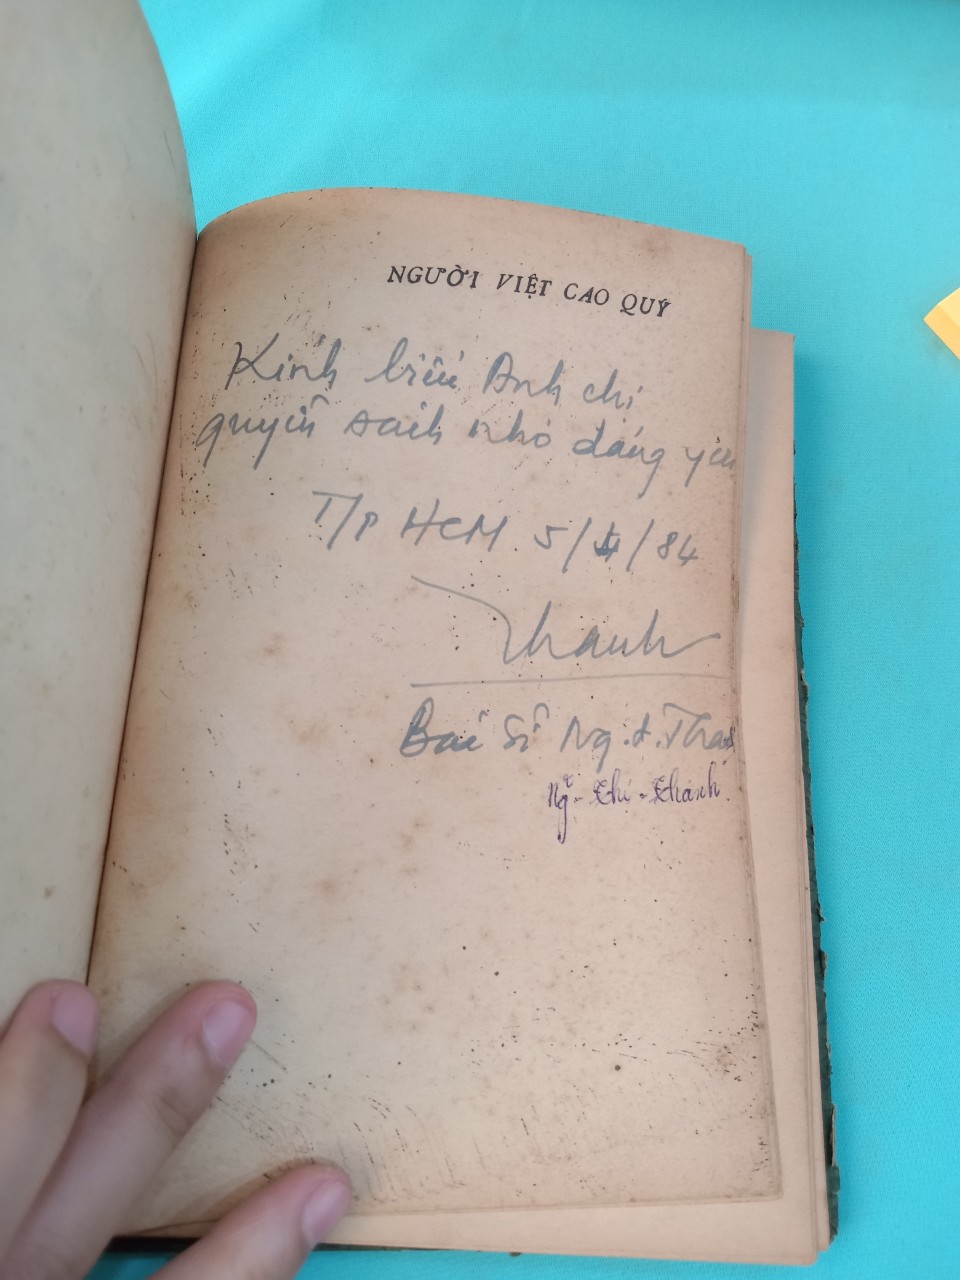 NGƯỜI VIỆT CAO QUÝ
Kính biếu Anh chị
quyển sách nhỏ đáng yêu
T/P HCM 5/4/84
Thanh
Bác sĩ Ng.
Ng̃ - Chí - Thanh